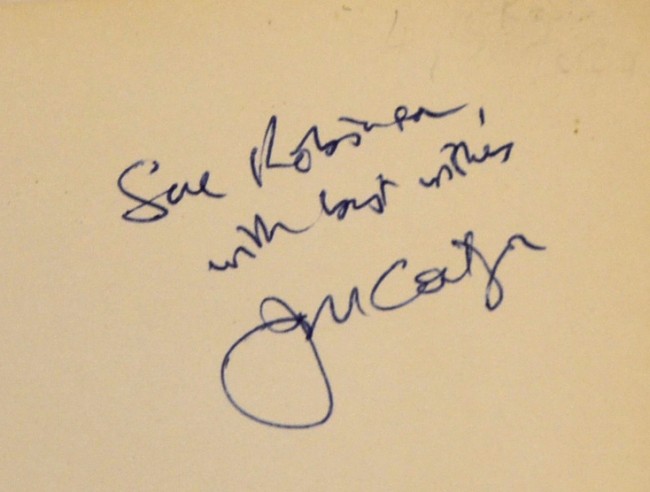 Sue Robinson,
with best wishes
JM Coetzee